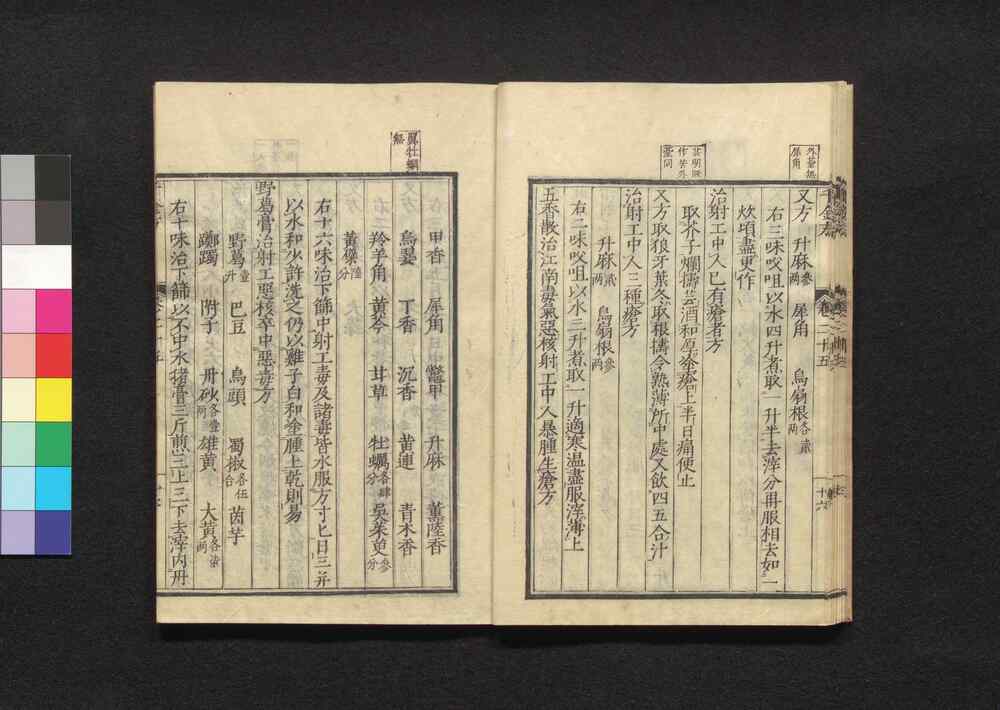 又方 升麻叁兩 犀角 烏翣根各貳兩
右三味㕮咀以水四升煮取一升半去滓分再服相去如一
炊頃盡更作
治射工中人已有瘡者方
取芥子爛擣苦酒和厚塗瘡上半日痛便止
又方取狼牙葉冬取根擣令熟薄所中處又飲四五合汁
治射工中人三種瘡方
升麻貳兩 烏翣根叁兩
右二味㕮咀以水三升煮取一升適寒温盡服滓薄上
五香散治江南毒氣惡核射工中人暴腫生瘡方
甲香 犀角 鼈甲 升麻 薰陸香
烏翣 丁香 沉香 黄連 青木香
羚羊角 黄芩 甘草 牡蠣各肆分 吳茱萸叁分
黄櫱陸分
右十六味治下篩中射工毒及諸毒皆水服方寸匕日三并
以水和少許洗之仍以雞子白和塗腫上乾則易
野葛膏治射工惡核卒中惡毒方
野葛壹升 巴豆 烏頭 蜀椒各伍合 茵芋
躑躅 附子 丹砂各壹兩 雄黄 大黄各柒兩
右十味治下篩以不中水猪膏三斤煎三上三下去滓内丹
千金方
卷二十五
十六